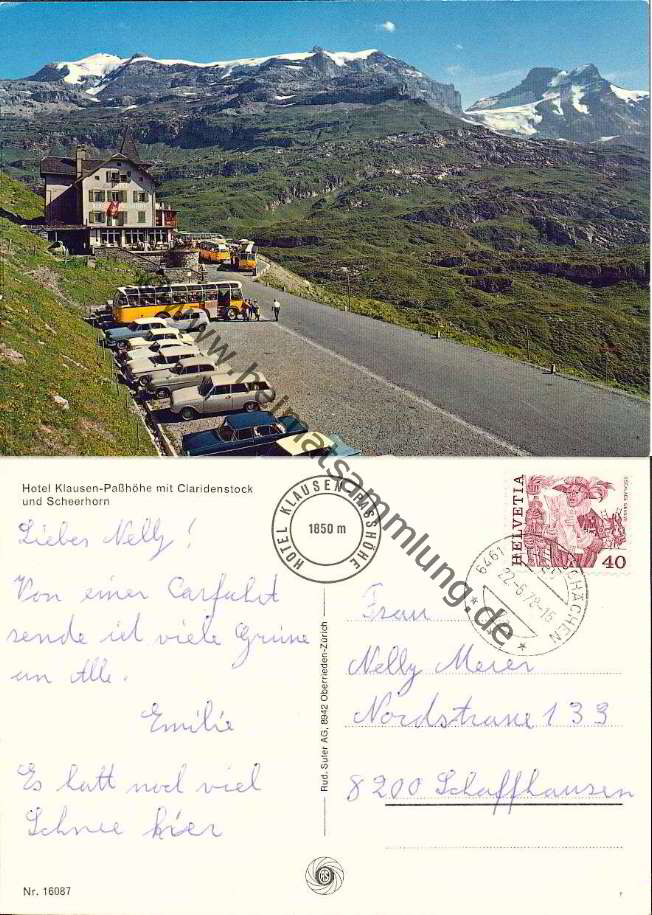 www.heimatsammlung.de
Hotel Klausen-Paßhöhe mit Claridenstock
und Scheerhorn
HOTEL KLAUSEN-PASSHÖHE
1850 m
HELVETIA
40
6461
22.-6.78-16
SCHÄCHEN
Liebes Nelly!
Von einer Carfahrt
sende ich viele Grüsse
an Alle.
Emilie
Es hatt noch viel
Schnee hier
Rud. Suter AG, 8942 Oberrieden-Zürich
Frau
Nelly Meier
Nordstrasse 133
8200 Schaffhausen
Nr. 16087